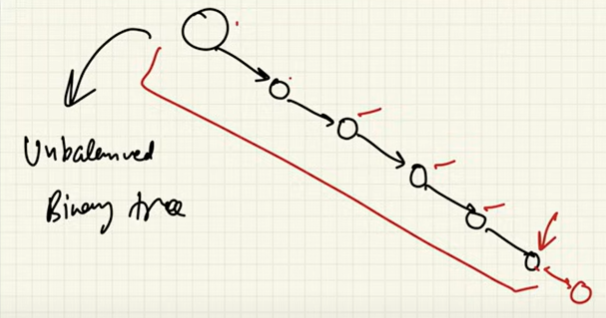 Unbalanced
Binary tree